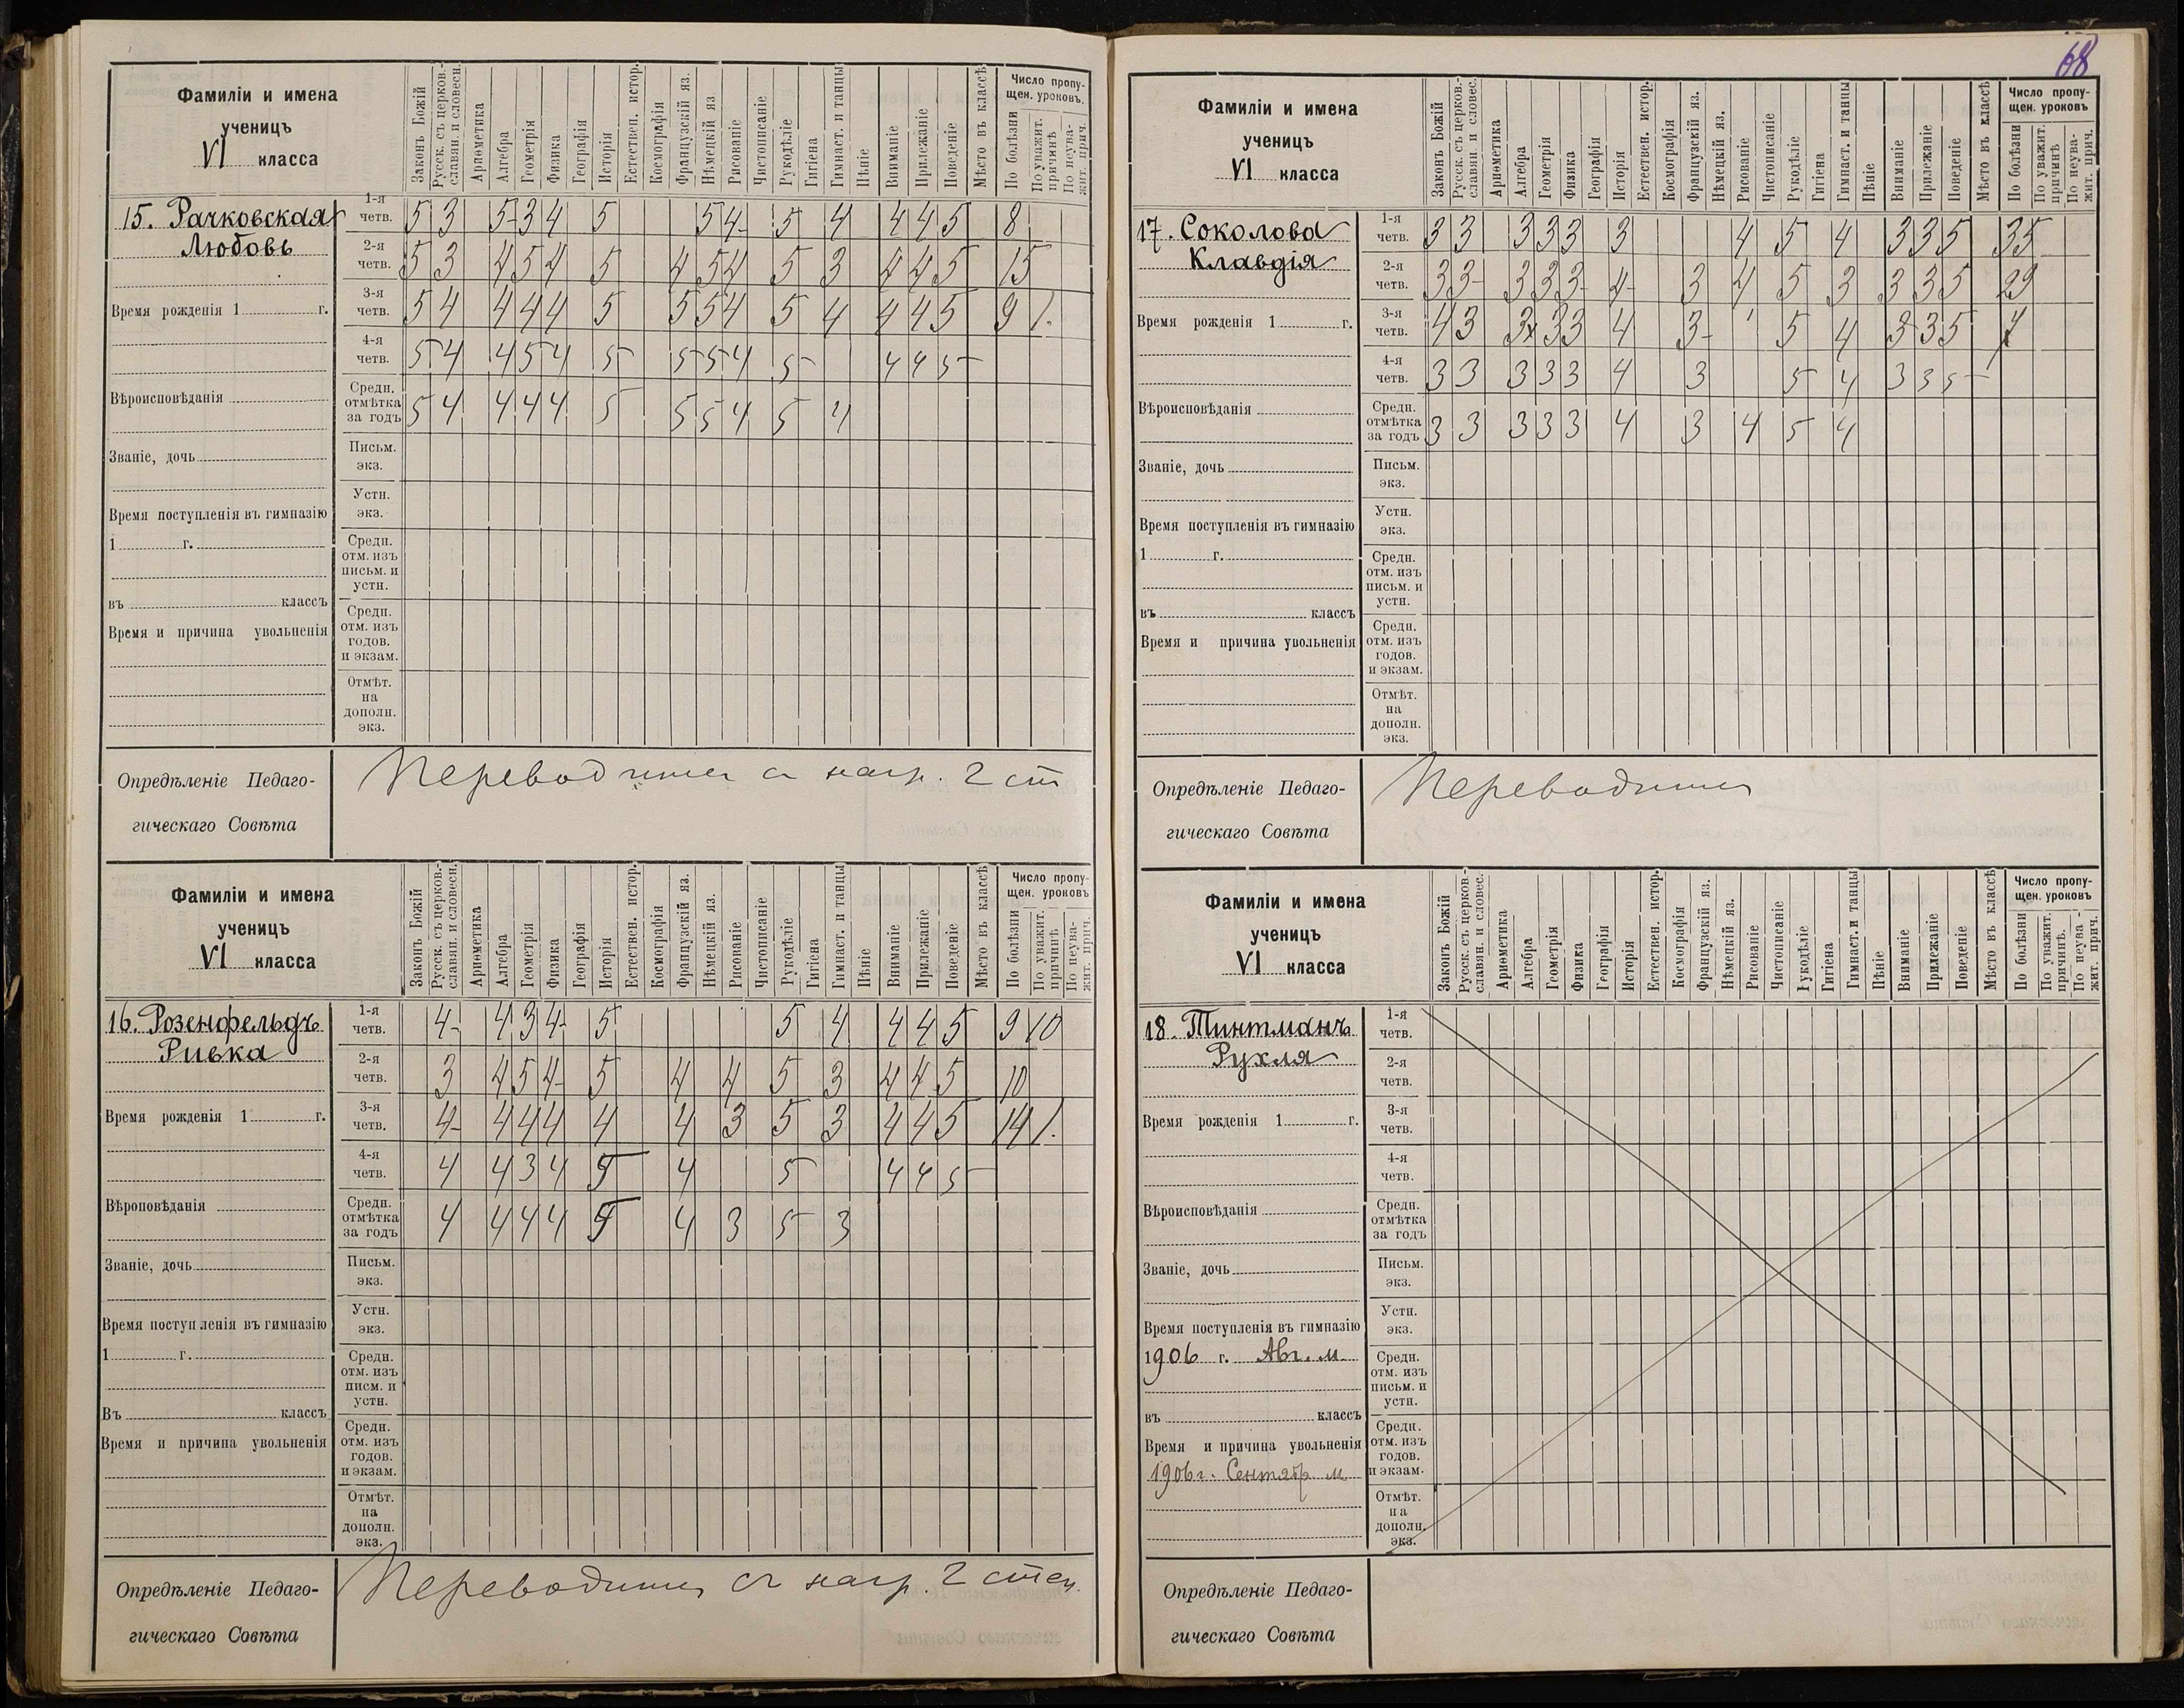 68
Фамиліи и имена
ученицъ
VI класса
Законъ Божій
Русск. съ церков.-
славян. и словесн.
Ариѳметика
Алгебра
Геометрія
Физика
Географія
Исторія
Естествен. истор.
Космографія
Французскій яз.
Нѣмецкій яз
Рисованіе
Чистописаніе
Рукодѣліе
Гигіена
Гимнаст. и танцы
Пѣніе
Вниманіе
Прилежаніе
Поведеніе
Мѣсто въ классѣ
Число пропу-
щен. уроковъ.
По болѣзни
По уважит.
причинѣ
По неува-
жит. прич.
15. Рачковская
Любовь
1-я четв. 5 3 5 3 4 5 5 4 5 4 4 4 5 8
2-я четв. 5 3 4 5 4 5 4 5 4 5 3 4 4 5 15
3-я четв. 5 4 4 4 4 5 5 5 4 5 4 4 4 5 9 1.
4-я четв. 5 4 4 5 4 5 5 5 4 5 4 4 5
Средн. отмѣтка за годъ 5 4 4 4 4 5 5 5 4 5 4
Время рожденія 1 г.
Вѣроисповѣданія
Званіе, дочь
Письм. экз.
Время поступленія въ гимназію
1 г.
Устн. экз.
Средн. отм. изъ письм. и устн.
въ классъ
Время и причина увольненія
Средн. отм. изъ годов. и экзам.
Отмѣт. на дополн. экз.
Опредѣленіе Педаго-
гическаго Совѣта
Переводится съ нагр. 2 ст
Фамиліи и имена
ученицъ
VI класса
Законъ Божій
Русск. съ церков.-
славян. и словесн.
Ариѳметика
Алгебра
Геометрія
Физика
Географія
Исторія
Естествен. истор.
Космографія
Французскій яз.
Нѣмецкій яз.
Рисованіе
Чистописаніе
Рукодѣліе
Гигіена
Гимнаст. и танцы
Пѣніе
Вниманіе
Прилежаніе
Поведеніе
Мѣсто въ классѣ
Число пропу-
щен. уроковъ
По болѣзни
По уважит.
причинѣ
По неува-
жит. прич.
16. Розенфельдъ
Ривка
1-я четв. 4 4 3 4 5 5 4 4 4 5 9 10
2-я четв. 3 4 5 4 5 4 4 5 3 4 4 5 10
3-я четв. 4 4 4 4 4 4 3 5 3 4 4 5 14 1.
4-я четв. 4 4 3 4 5 4 5 4 4 5
Средн. отмѣтка за годъ 4 4 4 4 5 4 3 5 3
Время рожденія 1 г.
Вѣроповѣданія
Званіе, дочь
Письм. экз.
Время поступленія въ гимназію
1 г.
Устн. экз.
Средн. отм. изъ писм. и устн.
Въ классъ
Время и причина увольненія
Средн. отм. изъ годов. и экзам.
Отмѣт. на дополн. экз.
Опредѣленіе Педаго-
гическаго Совѣта
Переводится съ нагр. 2 степ.
Фамиліи и имена
ученицъ
VI класса
Законъ Божій
Русск. съ церков.-
славян. и словес.
Ариѳметика
Алгебра
Геометрія
Физика
Географія
Исторія
Естествен. истор.
Космографія
Французскій яз.
Нѣмецкій яз.
Рисованіе
Чистописаніе
Рукодѣліе
Гигіена
Гимнаст. и танцы
Пѣніе
Вниманіе
Прилежаніе
Поведеніе
Мѣсто въ классѣ
Число пропу-
щен. уроковъ
По болѣзни
По уважит.
причинѣ
По неува-
жит. прич.
17. Соколова
Клавдія
1-я четв. 3 3 3 3 3 3 4 5 4 3 3 5 35
2-я четв. 3 3 3 3 3 4 3 4 5 3 3 3 5 29
3-я четв. 4 3 3 3 3 4 3 5 4 3 3 5 7
4-я четв. 3 3 3 3 3 4 3 5 4 3 3 5
Средн. отмѣтка за годъ 3 3 3 3 3 4 3 4 5 4
Время рожденія 1 г.
Вѣроисповѣданія
Званіе, дочь
Письм. экз.
Время поступленія въ гимназію
1 г.
Устн. экз.
Средн. отм. изъ письм. и устн.
въ классъ
Время и причина увольненія
Средн. отм. изъ годов. и экзам.
Отмѣт. на дополн. экз.
Опредѣленіе Педаго-
гическаго Совѣта
Переводится
Фамиліи и имена
ученицъ
VI класса
Законъ Божій
Русск. съ церков.-
славян. и словес.
Ариѳметика
Алгебра
Геометрія
Физика
Географія
Исторія
Естествен. истор.
Космографія
Французскій яз.
Нѣмецкій яз.
Рисованіе
Чистописаніе
Рукодѣліе
Гигіена
Гимнаст. и танцы
Пѣніе
Вниманіе
Прилежаніе
Поведеніе
Мѣсто въ классѣ
Число пропу-
щен. уроковъ
По болѣзни
По уважит.
причинѣ.
По неува-
жит. прич.
18. Тинтманъ
Рухля
1-я четв.
2-я четв.
3-я четв.
4-я четв.
Время рожденія 1 г.
Вѣроисповѣданія
Средн. отмѣтка за годъ
Званіе, дочь
Письм. экз.
Время поступленія въ гимназію
1906 г. Авг. м.
Устн. экз.
Средн. отм. изъ письм. и устн.
въ классъ
Время и причина увольненія
1906 г. Сентябр м.
Средн. отм. изъ годов. и экзам.
Отмѣт. на дополн. экз.
Опредѣленіе Педаго-
гическаго Совѣта